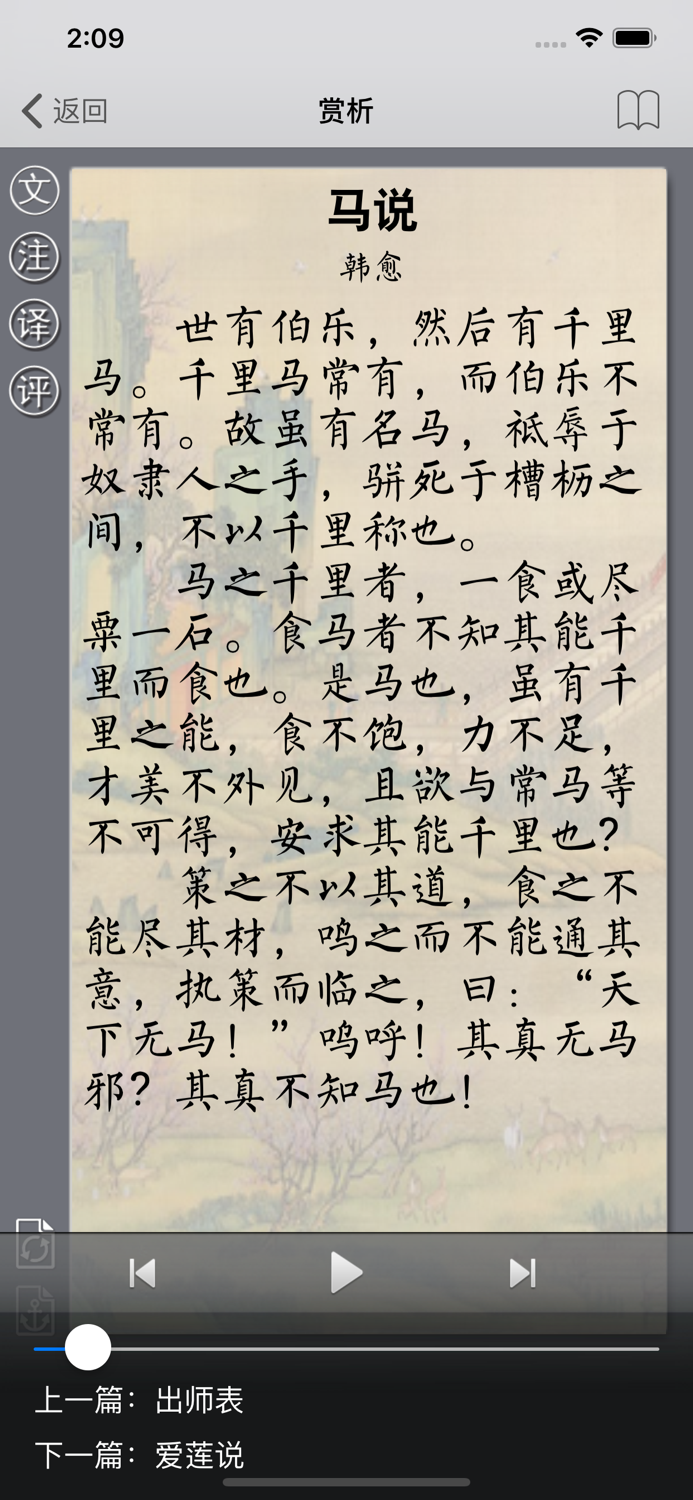 2:09
返回
赏析
文
注
译
评
马说
韩愈
世有伯乐，然后有千里
马。千里马常有，而伯乐不
常有。故虽有名马，祗辱于
奴隶人之手，骈死于槽枥之
间，不以千里称也。
马之千里者，一食或尽
粟一石。食马者不知其能千
里而食也。是马也，虽有千
里之能，食不饱，力不足，
才美不外见，且欲与常马等
不可得，安求其能千里也？
策之不以其道，食之不
能尽其材，鸣之而不能通其
意，执策而临之，曰：“天
下无马！”呜呼！其真无马
邪？其真不知马也！
上一篇：出师表
下一篇：爱莲说